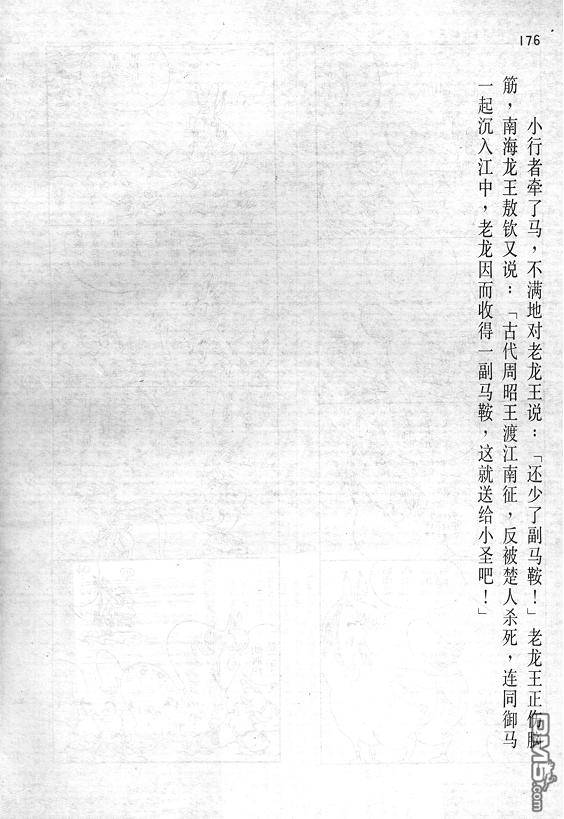 176
小行者牵了马，不满地对老龙王说：「还少了副马鞍！」老龙王正伤脑
筋，南海龙王敖钦又说：「古代周昭王渡江南征，反被楚人杀死，连同御马
一起沉入江中，老龙因而收得一副马鞍，这就送给小圣吧！」